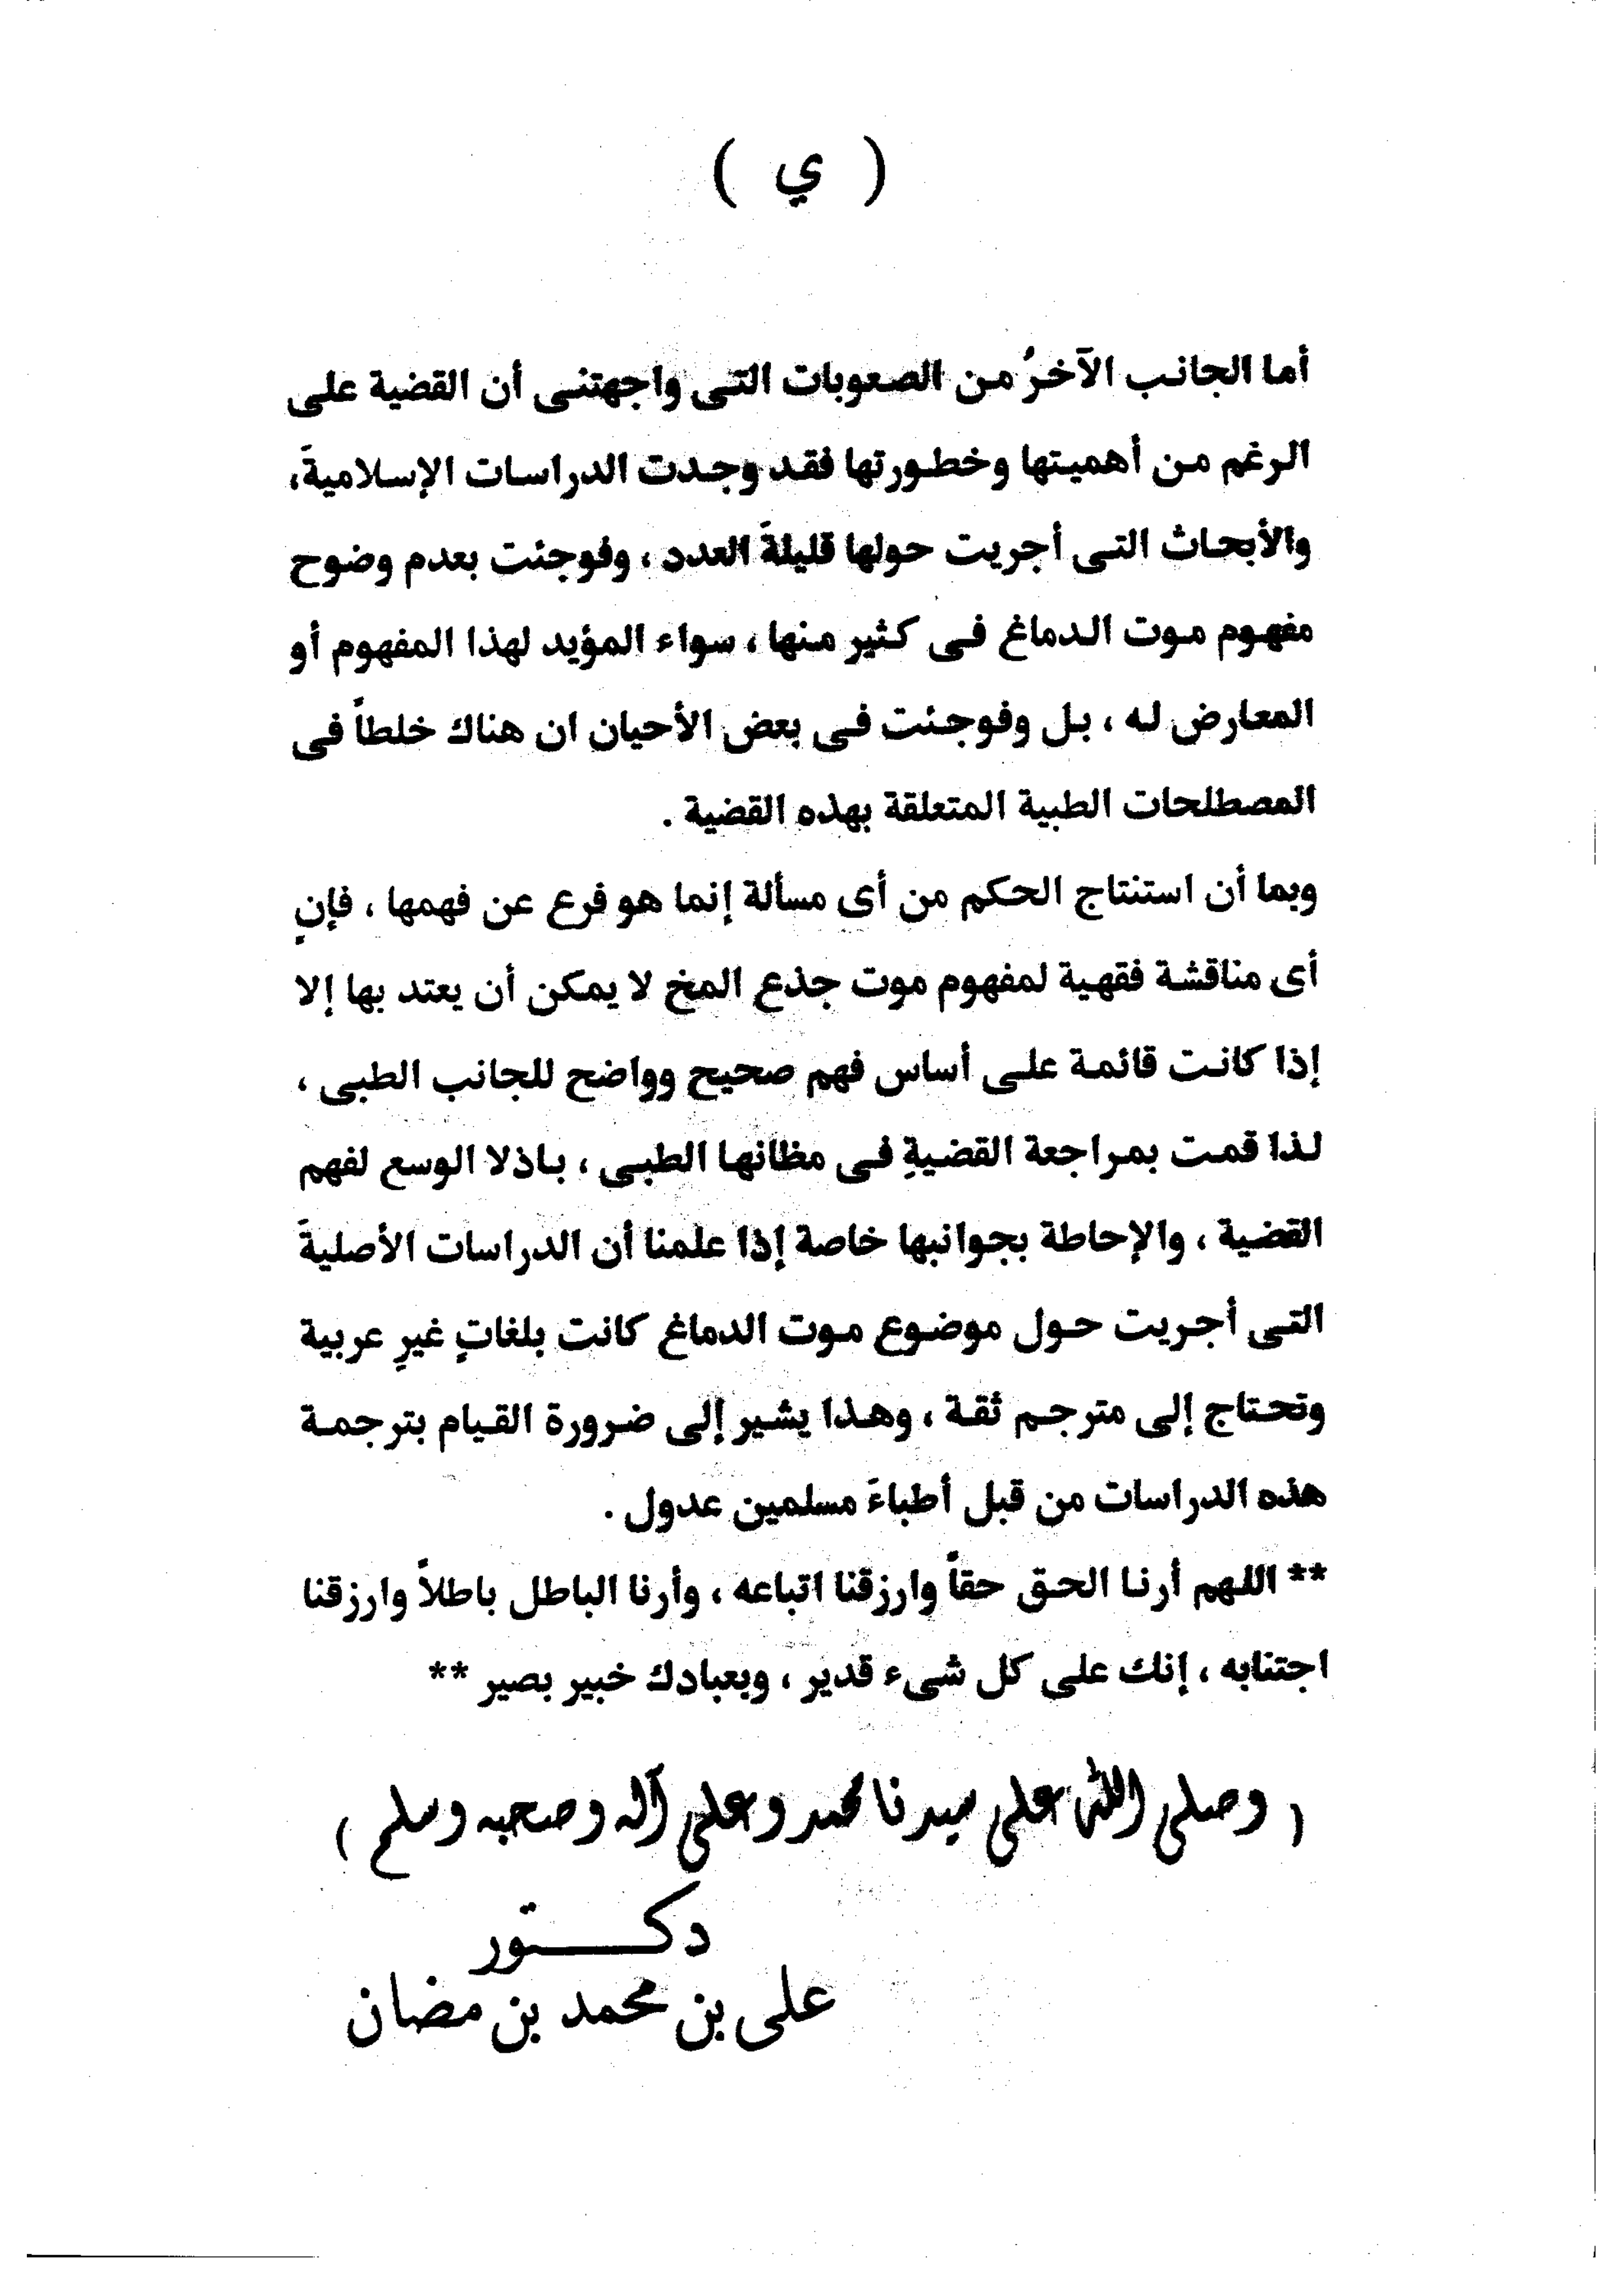 ( ي )
أما الجانب الآخرُ من الصعوبات التى واجهتنى أن القضية على
الرغم من أهميتها وخطورتها فقد وجدت الدراسات الإسلاميةَ،
والأبحاث التى أجريت حولها قليلةَ العدد ، وفوجئت بعدم وضوح
مفهوم موت الدماغ فى كثير منها ، سواء المؤيد لهذا المفهوم أو
المعارض له ، بل وفوجئت فى بعض الأحيان ان هناك خلطاً فى
المصطلحات الطبية المتعلقة بهذه القضية .
وبما أن استنتاج الحكم من أى مسألة إنما هو فرع عن فهمها ، فإن
أى مناقشة فقهية لمفهوم موت جذع المخ لا يمكن أن يعتد بها إلا
إذا كانت قائمة على أساس فهم صحيح وواضح للجانب الطبى ،
لذا قمت بمراجعة القضيةِ فى مظانها الطبى ، باذلا الوسع لفهم
القضية ، والإحاطة بجوانبها خاصة إذا علمنا أن الدراسات الأصليةَ
التى أجريت حول موضوع موت الدماغ كانت بلغاتٍ غيرِ عربية
وتحتاج إلى مترجم ثقة ، وهذا يشير إلى ضرورة القيام بترجمة
هذه الدراسات من قبل أطباءَ مسلمين عدول .
** اللهم أرنا الحق حقاً وارزقنا اتباعه ، وأرنا الباطل باطلاً وارزقنا
اجتنابه ، إنك على كل شىء قدير ، وبعبادك خبير بصير **
( وصلى الله على سيدنا محمد وعلى آله وصحبه وسلم )
دكـــتور
على بن محمد بن مضان